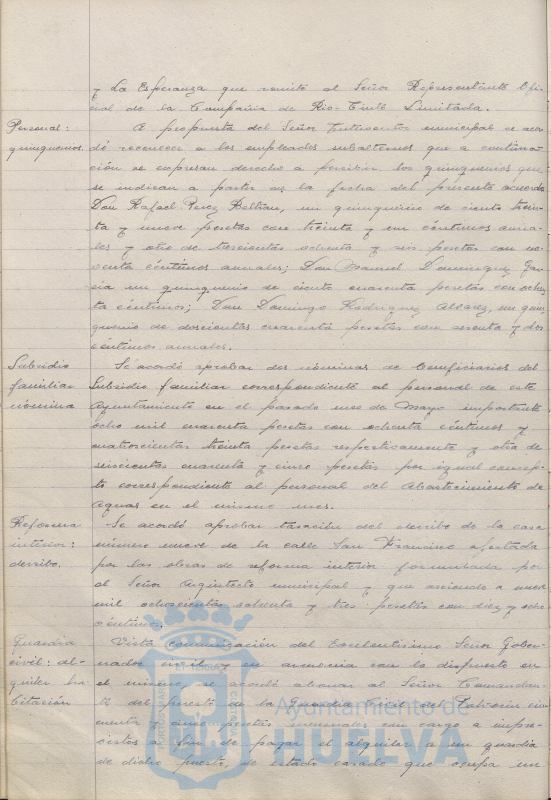 y La Esperanza que remite el Señor Representante Ofi-
cial de la Compañia de Rio-Tinto Limitada.
Personal:
quinquenios.
A propuesta del Señor Interventor municipal se acor-
dó reconocer a los empleados subalternos que a continua-
ción se expresan derecho a percibir los quinquenios que
se indican a partir de la fecha del presente acuerdo
Don Rafael Perez Beltran, un quinquenio de ciento trein-
ta y nueve pesetas con treinta y un céntimos anua-
les y otro de trescientas ochenta y seis pesetas con no-
venta céntimos anuales; Don Manuel Dominguez Gar-
cia un quinquenio de ciento cuarenta pesetas con ochen-
ta céntimos; Don Domingo Rodriguez Alvarez, un quin-
quenio de doscientas cuarenta pesetas con sesenta y dos
céntimos anuales.
Subsidio
familiar
nómina
Se acordó aprobar dos nóminas de beneficiarios del
Subsidio familiar correspondiente al personal de este
Ayuntamiento en el pasado mes de Mayo importante
ocho mil cuarenta pesetas con ochenta céntimos y
cuatrocientas treinta pesetas respectivamente y otra de
seiscientas cuarenta y cinco pesetas por igual concep-
to correspondiente al personal del Abastecimiento de
Aguas en el mismo mes.
Reforma
interior:
derribo.
Se acordó aprobar tasación del derribo de la casa
número nueve de la calle San Francisco afectada
por las obras de reforma interior formulada por
el Señor Arquitecto municipal y que asciende a nueve
mil ochocientas ochenta y tres pesetas con diez y ocho
céntimos.
Guardia
civil: al-
quiler ha-
bitación
Vista comunicación del Excelentisimo Señor Gober-
nador civil y en armonia con lo dispuesto en
el mismo se acordó abonar al Señor Comandan-
te del puesto de la Guardia Civil del
y cinco pesetas mensuales con cargo a impre-
vistos a fin de pagar el alquiler a un guardia
de dicho puesto, de estado casado que ocupa un
Ayuntamiento de
HUELVA